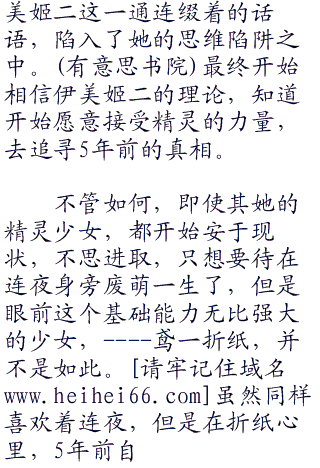 美姬二这一通连缀着的话
语，陷入了她的思维陷阱之
中。(有意思书院)最终开始
相信伊美姬二的理论，知道
开始愿意接受精灵的力量，
去追寻5年前的真相。
不管如何，即使其她的
精灵少女，都开始安于现
状，不思进取，只想要待在
连夜身旁废萌一生了，但是
眼前这个基础能力无比强大
的少女，----鸢一折纸，并
不是如此。[请牢记住域名
www.heihei66.com]虽然同样
喜欢着连夜，但是在折纸心
里，5年前自